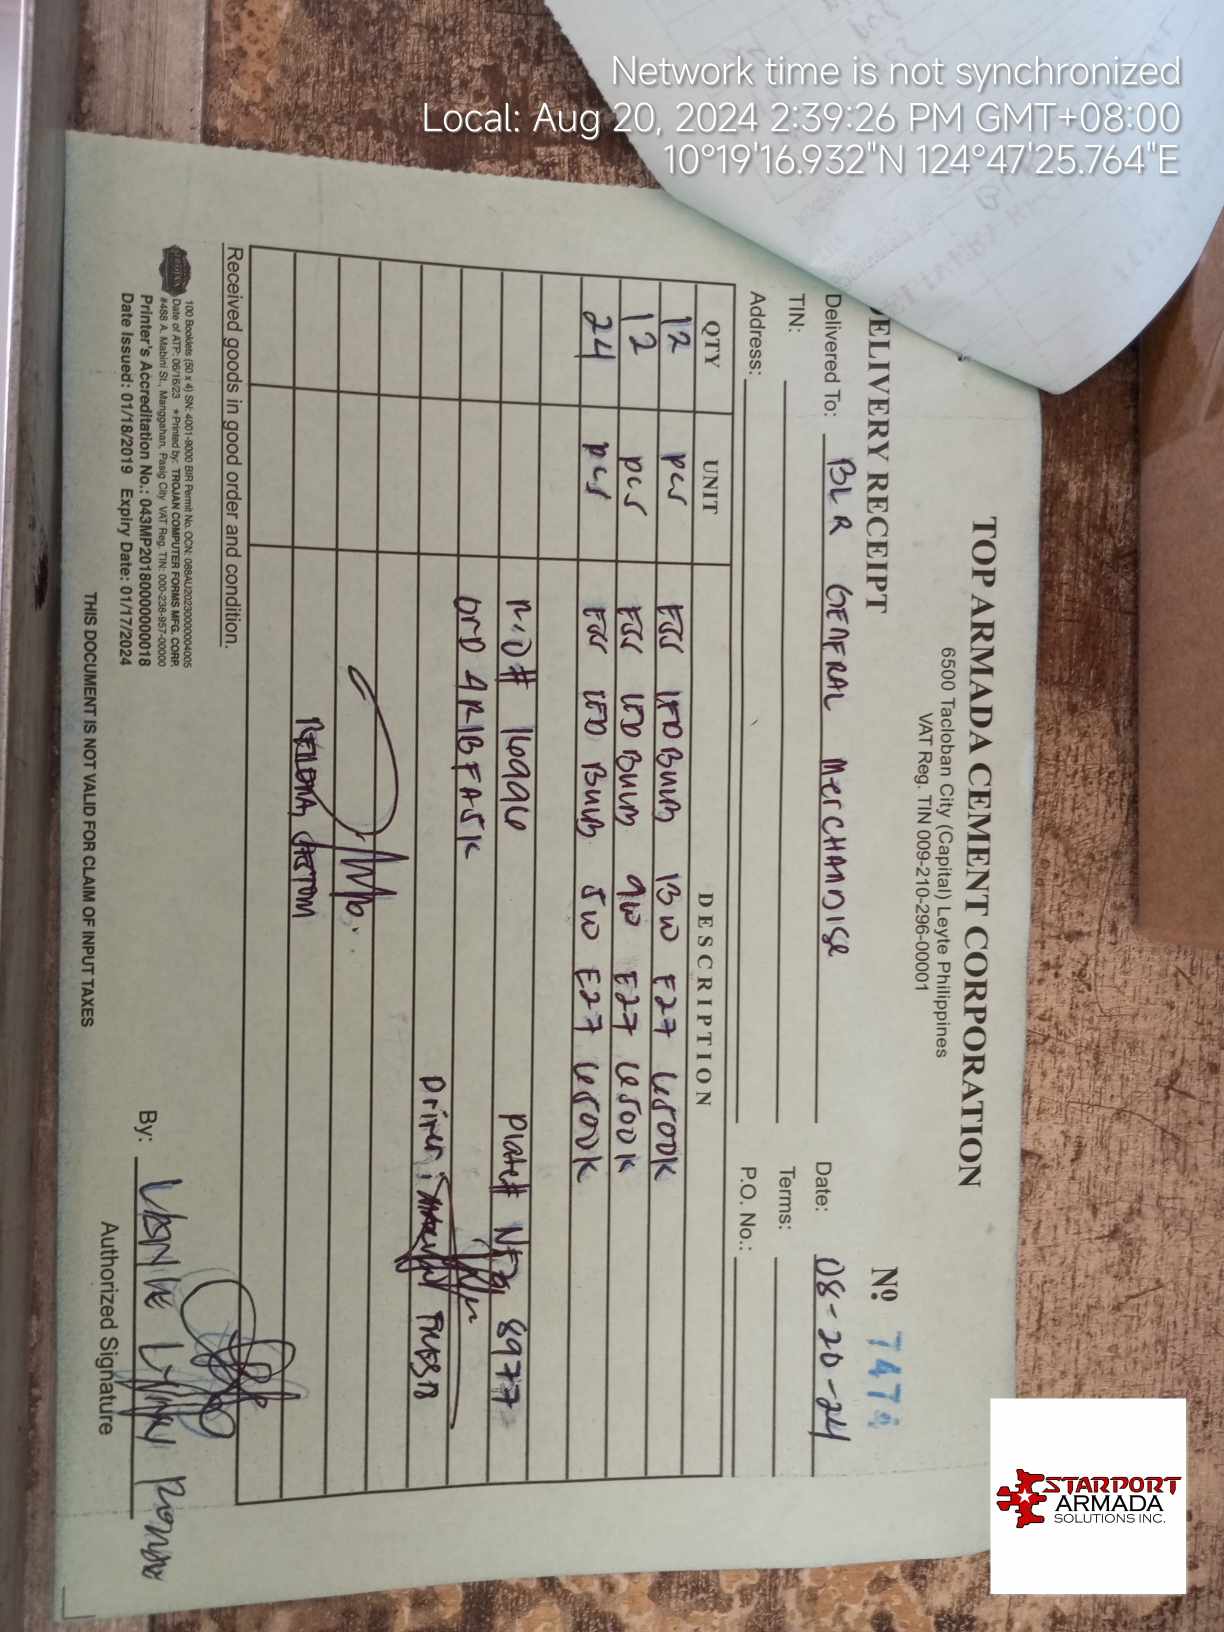 Network time is not synchronized
Local: Aug 20, 2024 2:39:26 PM GMT+08:00
10°19'16.932"N 124°47'25.764"E
TOP ARMADA CEMENT CORPORATION
6500 Tacloban City (Capital) Leyte Philippines
VAT Reg. TIN 009-210-296-00001
DELIVERY RECEIPT Nº 747
Delivered To: BLR GENERAL MerCHANDISE Date: 08-20-24
TIN: Terms:
Address: P.O. No.:
QTY UNIT DESCRIPTION
12 pcs FSS LED BULB 13W E27 6500K
12 pcs FSS LED BULB 9W E27 6500K
24 pcs FSS LED BULB 5W E27 6500K
16996 Plate# 8977
Driver:
Received goods in good order and condition.
100 Booklets (50 x 4) SN: 4001-9000 BIR Permit No. OCN: 088AU20230000004005
Date of ATP: 06/16/23 • Printed by: TROJAN COMPUTER FORMS MFG. CORP.
#488 A. Mabini St., Manggahan, Pasig City VAT Reg. TIN: 000-238-957-00000
Printer's Accreditation No.: 043MP20180000000018
Date Issued: 01/18/2019 Expiry Date: 01/17/2024
By:
Authorized Signature
THIS DOCUMENT IS NOT VALID FOR CLAIM OF INPUT TAXES
STARPORT
ARMADA
SOLUTIONS INC.